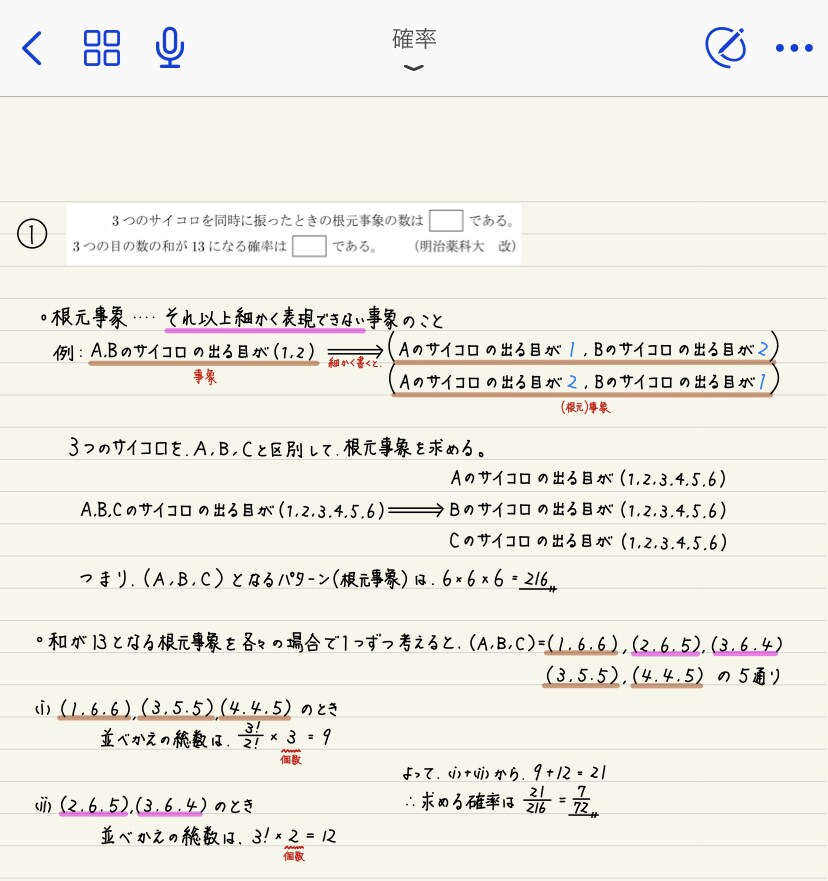 確率
① 3つのサイコロを同時に振ったときの根元事象の数は□である。
3つの目の数の和が13になる確率は□である。 (明治薬科大 改)
○根元事象‥‥それ以上細かく表現できない事象のこと
例:A.Bのサイコロの出る目が(1,2) ⟹ (Aのサイコロの出る目が1,Bのサイコロの出る目が2)
事象 細かく書くと.
(Aのサイコロの出る目が2,Bのサイコロの出る目が1)
(根元)事象
3つのサイコロを.A,B,Cと区別して.根元事象を求める。
Aのサイコロの出る目が(1.2.3.4.5.6)
A.B.Cのサイコロの出る目が(1.2.3.4.5.6) ⟹ Bのサイコロの出る目が(1.2.3.4.5.6)
Cのサイコロの出る目が(1.2.3.4.5.6)
つまり.(A,B,C)となるパターン(根元事象)は.6×6×6=216〃
○和が13となる根元事象を各々の場合で1つずつ考えると.(A,B,C)=(1.6.6),(2.6.5),(3.6.4)
(3.5.5),(4.4.5)の5通り
(i) (1.6.6),(3.5.5),(4.4.5)のとき
並べかえの総数は.3!/2!×3=9
個数
よって.(i)+(ii)から.9+12=21
∴求める確率は 21/216=7/72〃
(ii) (2.6.5),(3.6.4)のとき
並べかえの総数は.3!×2=12
個数